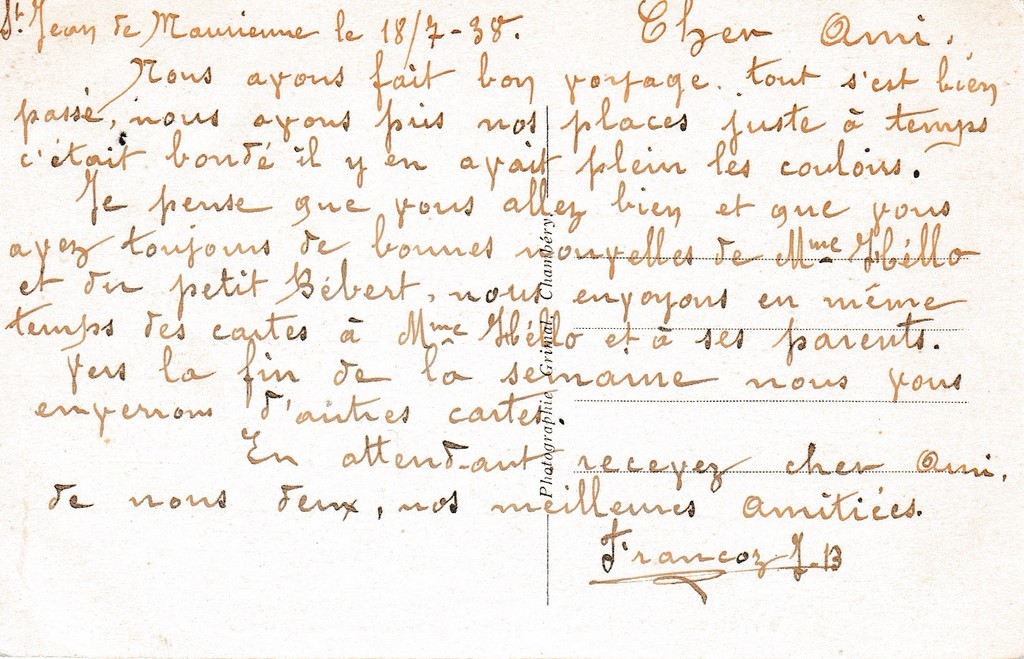 St. Jean de Maurienne le 18/7-38. Cher Ami.
Nous avons fait bon voyage. tout s'est bien
passé, nous avons pris nos places juste à temps
c'était bondé il y en avait plein les couloirs.
Je pense que vous allez bien et que vous
avez toujours de bonnes nouvelles de Mme Héllo
et du petit Bébert, nous envoyons en même
temps des cartes à Mme Héllo et à ses parents.
Vers la fin de la semaine nous vous
enverrons d'autres cartes.
En attendant recevez cher Ami.
de nous deux, nos meilleures amitiées.
Francoz J-B
Photographie Grimal, Chambéry.